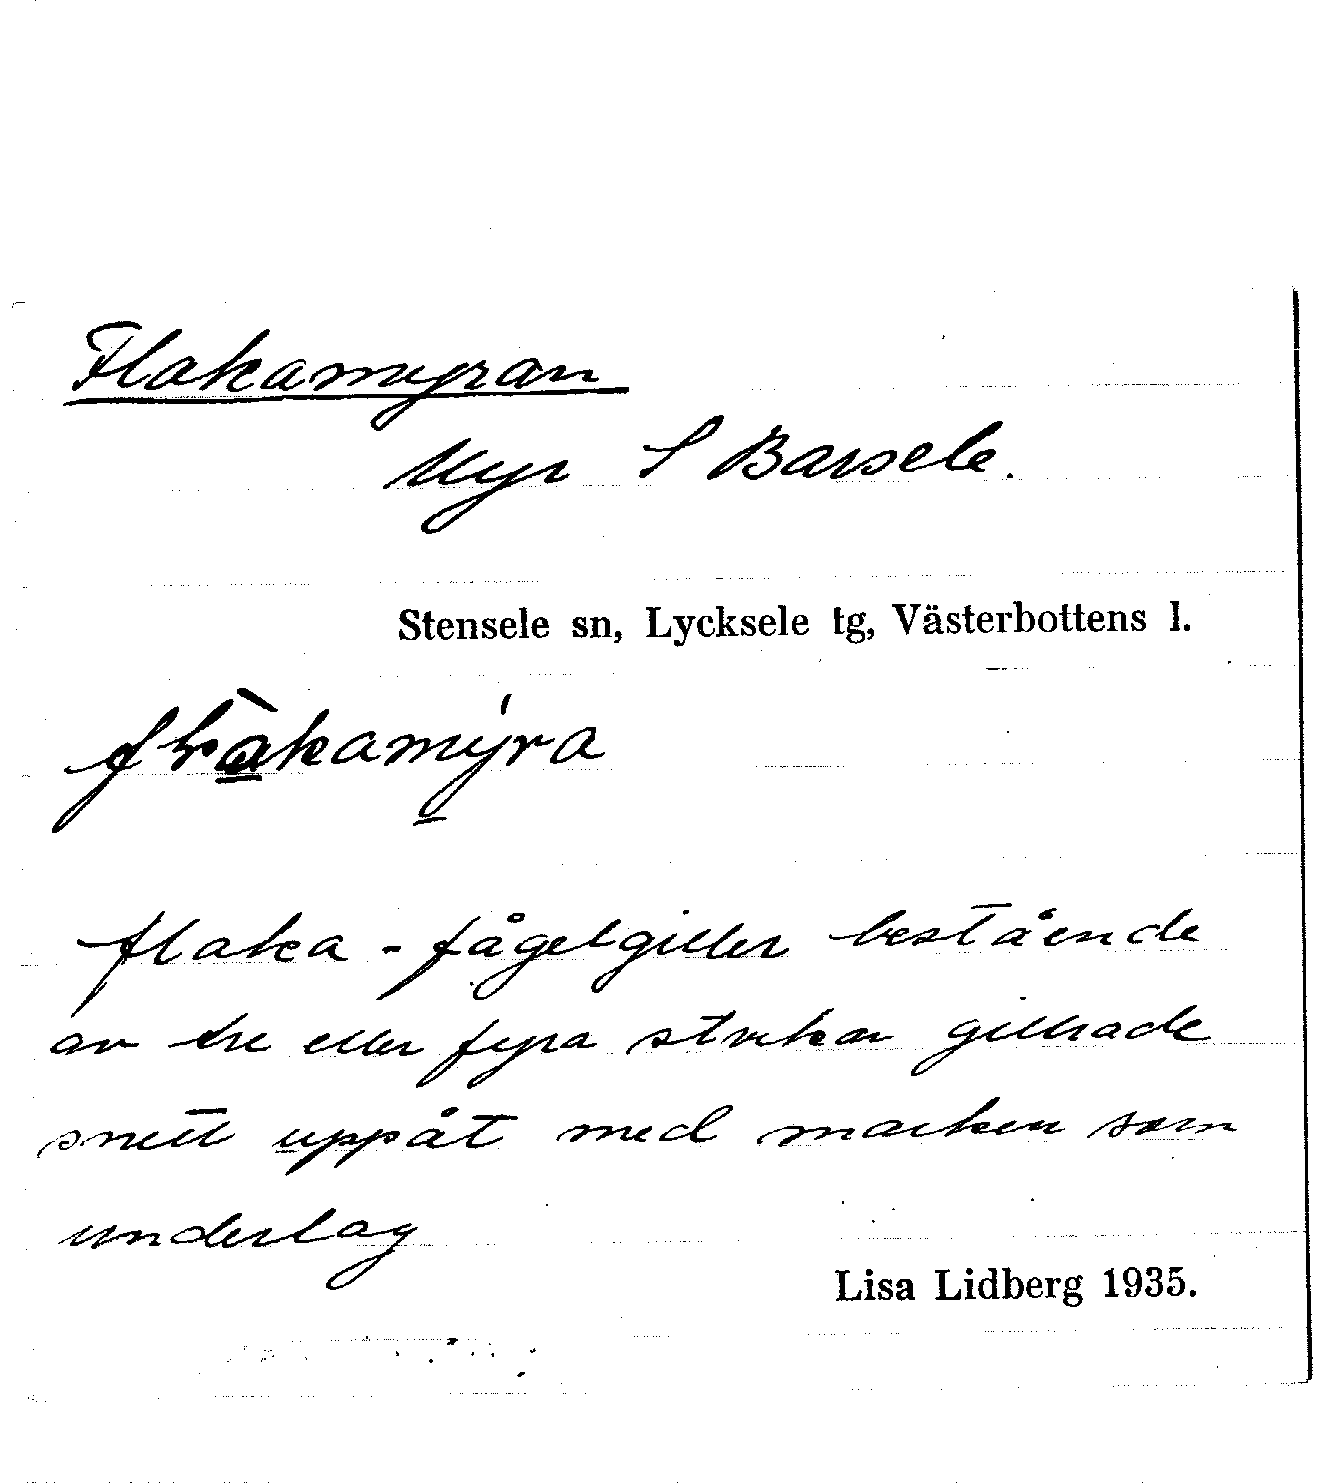 Flakamyran
Myr S Barsele.
Stensele sn, Lycksele tg, Västerbottens l.
flàkamýra
flaka - fågelgiller bestående
av tre eller fyra stickor gillrade
snett uppåt med marken som
underlag
Lisa Lidberg 1935.